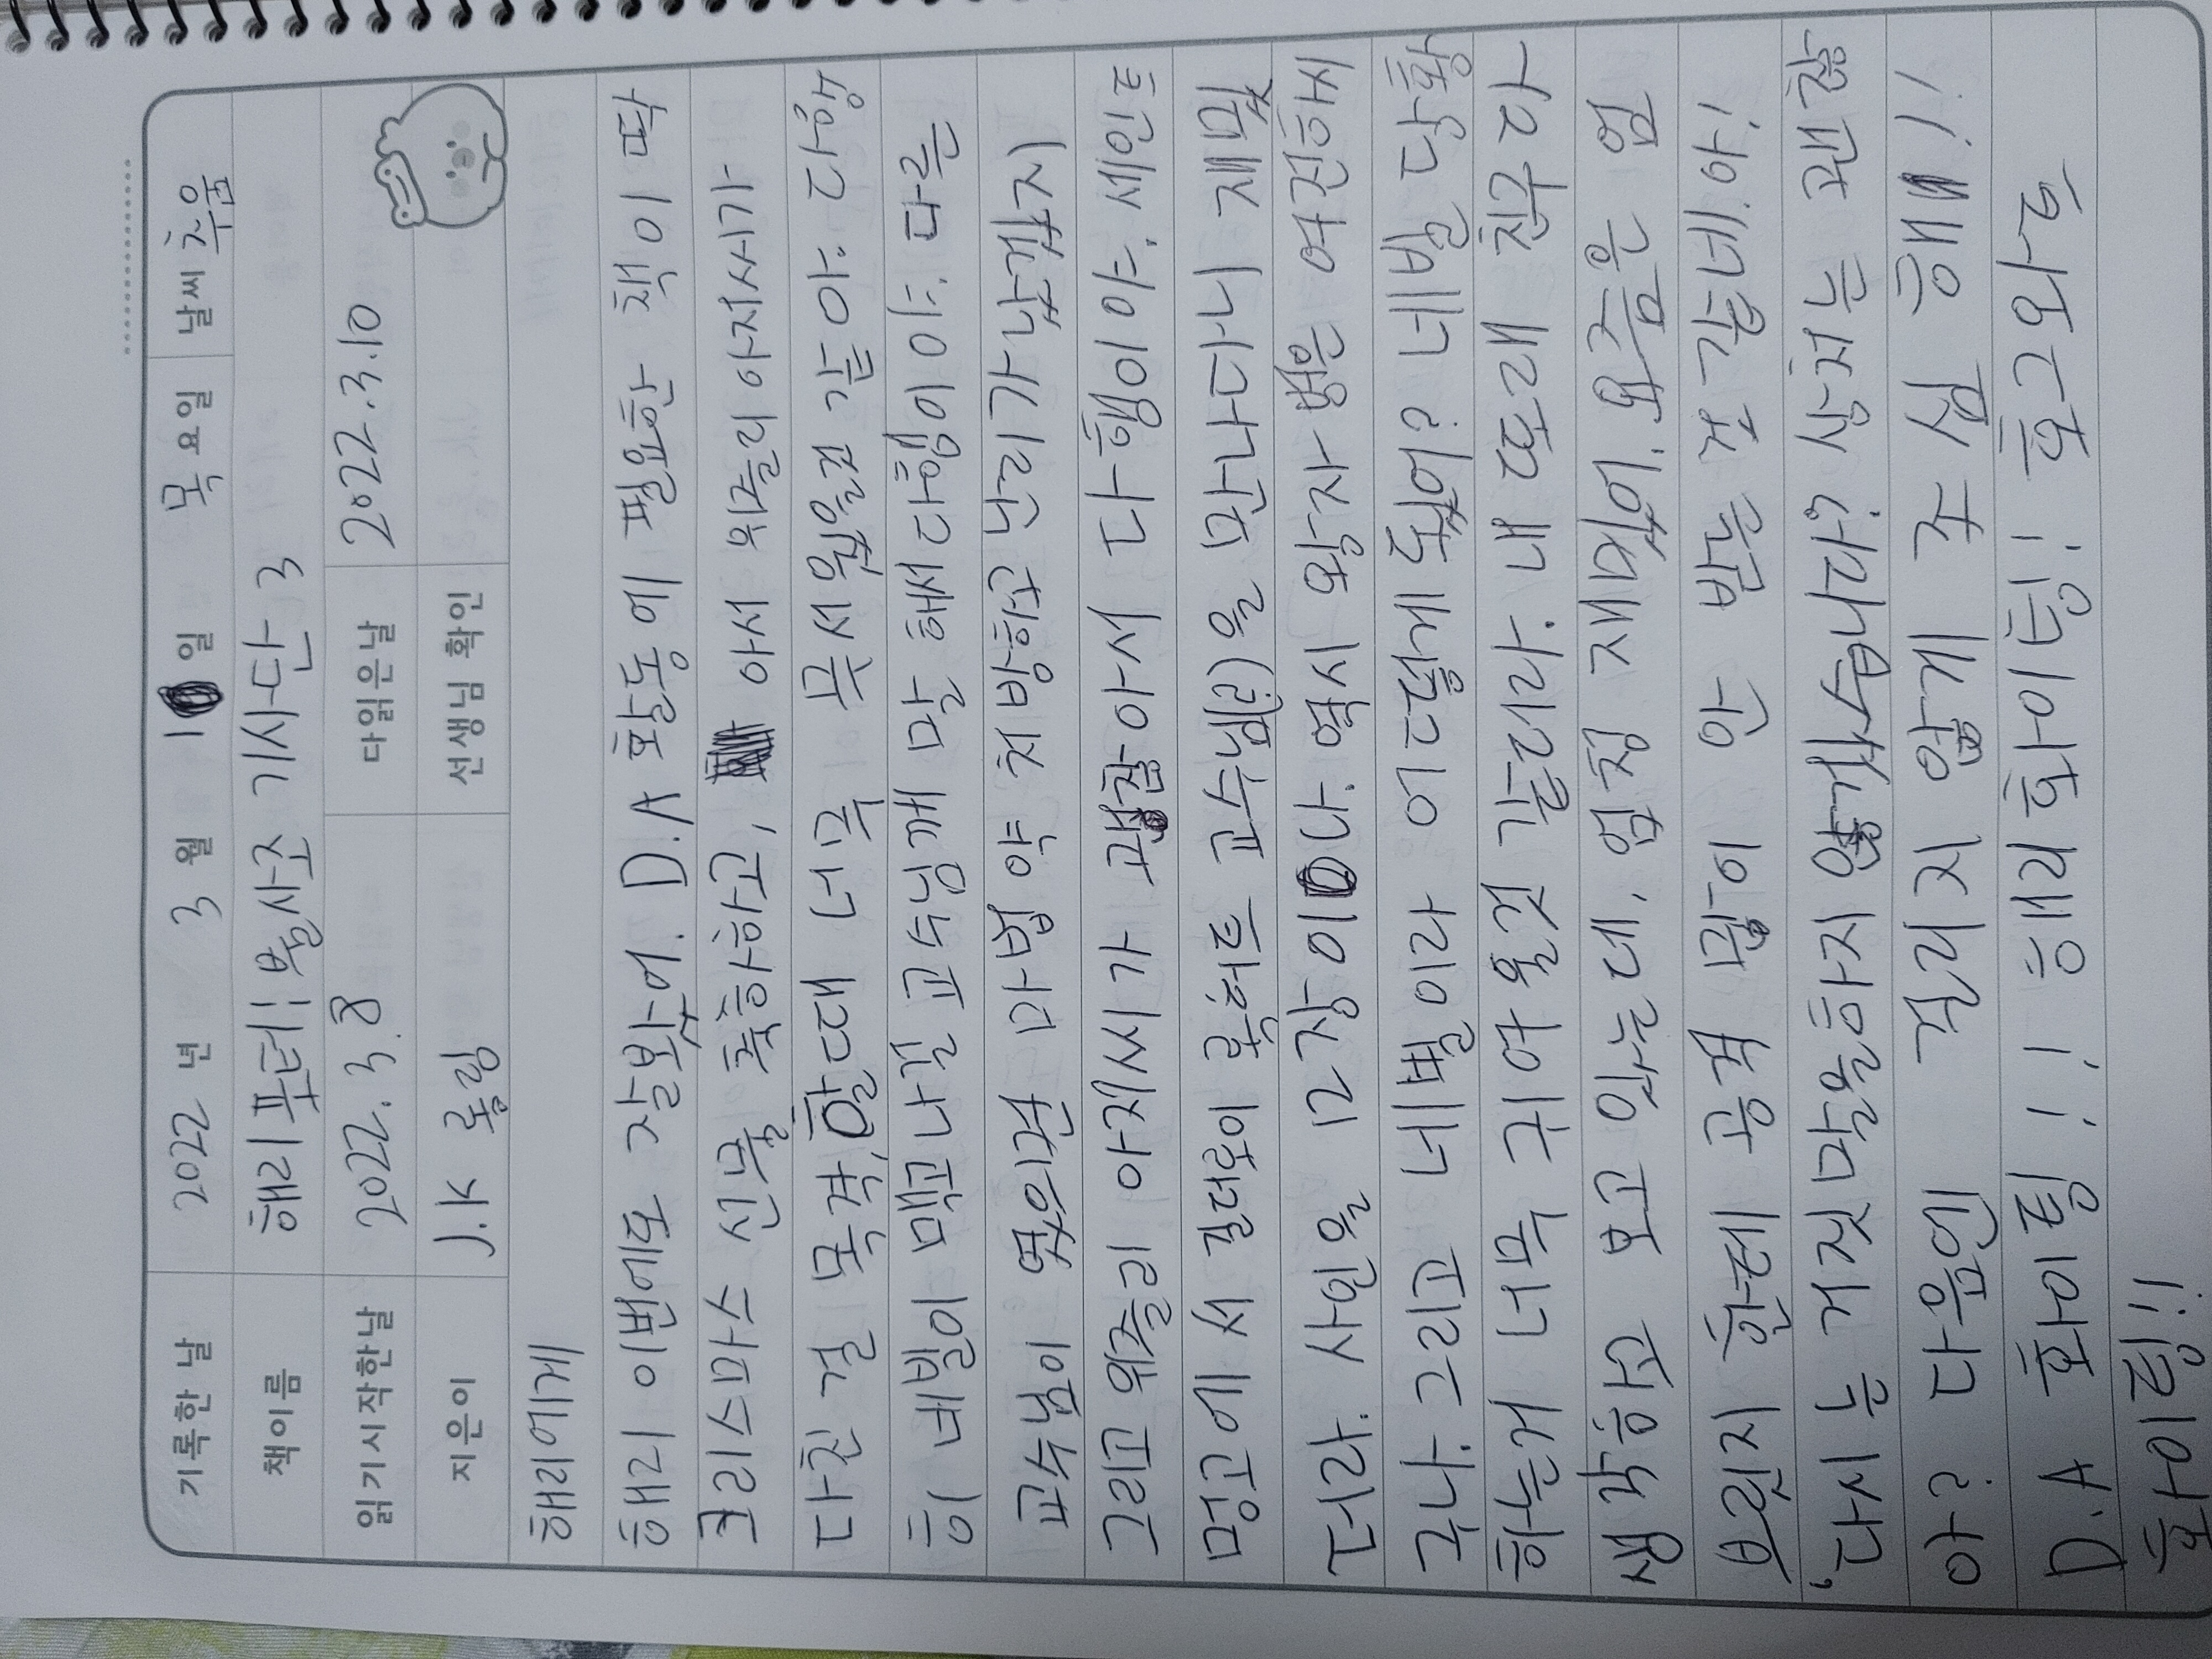 기록한 날 2022 년 3 월 10 일 목 요일 날씨 추움
책이름 해리포터! 불사조 기사단 3
읽기시작한날 2022. 3. 8 다읽은날 2022.3.10
지은이 J.K 롤링 선생님 확인
해리에게
해리 이번에도 잘봤어. D.A 활동에 필요한 책이 딱
크리스마스 선물 축하하고, 아서 위즐리 아저씨가
다친 걸 목격, 할때 너무 무서웠을것 같아. 다행
히 네빌이 맥고나걸 교수님께 말 해서 다행이야. 다른
교수님이 였의면 마법 약 처방하고 난리가 났겠지
그리고 위즐리 아저씨가 괜찮아서 다행이야. 세인트
멍고에서 길더로이 록허트 교수님(?)을 만나다니 재밌
더라. 사인을 12장이나. 역시 왕자 병은 여전하시
구나. 그리고 네빌이라 어떻게 됬어? 네빌 당황
하는거 너무 귀여울것 같더라. 내 또래 친구다
생각하고 보고 있는데, 엄청 재밌어. 요즘은 엄
브릿지 한테 공격 많이 안 받는 것 같네. 아!
'다시는 거짓말을하지 않겠습니다? 상처는 괜찮
아? 다음엔 걸리지 않게 조심 해!!
D.A 화이팅!! 해리 화이팅! 호그와트
화이팅!!